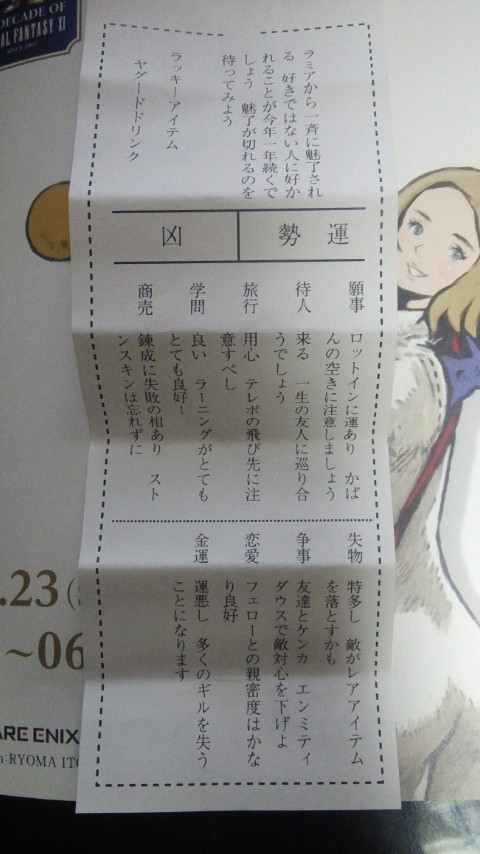 DECADE OF
AL FANTASY XI
SINCE 2002
ラミアから一斉に魅了され
る 好きではない人に好か
れることが今年一年続くで
しょう 魅了が切れるのを
待ってみよう
ラッキーアイテム
ヤグードドリンク
運勢
凶
願事 ロットインに運あり かば
んの空きに注意しましょう
待人 来る 一生の友人に巡り合
うでしょう
旅行 用心 テレポの飛び先に注
意すべし
学問 良い ラーニングがとても
とても良好!
商売 錬成に失敗の相あり スト
ンスキンは忘れずに
失物 特多し 敵がレアアイテム
を落とすかも
争事 友達とケンカ エンミティ
ダウスで敵対心を下げよ
恋愛 フェローとの親密度はかな
り良好
金運 運悪し 多くのギルを失う
ことになります
.23(
~06
ARE ENIX
n:RYOMA ITO